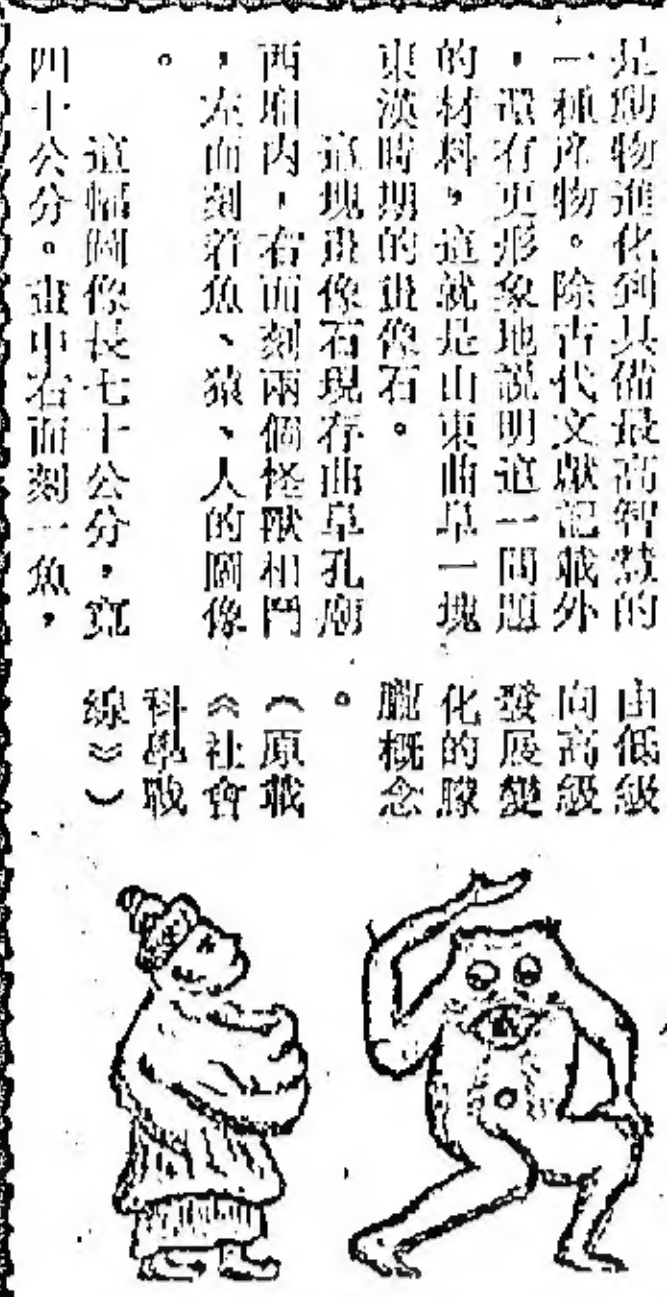 是動物進化到具備最高智慧的
一種產物。除古代文獻記載外
，還有更形象地說明這一問題
的材料，這就是山東曲阜一塊
東漢時期的畫像石。
這塊畫像石現存曲阜孔廟
西廂內，右面刻兩個怪獸相鬥
，左面刻着魚、猿、人的圖像
。
這幅圖像長七十公分，寬
四十公分。畫中右面刻一魚，
由低級
向高級
發展變
化的朦
朧概念
。
（原載
《社會
科學戰
線》）